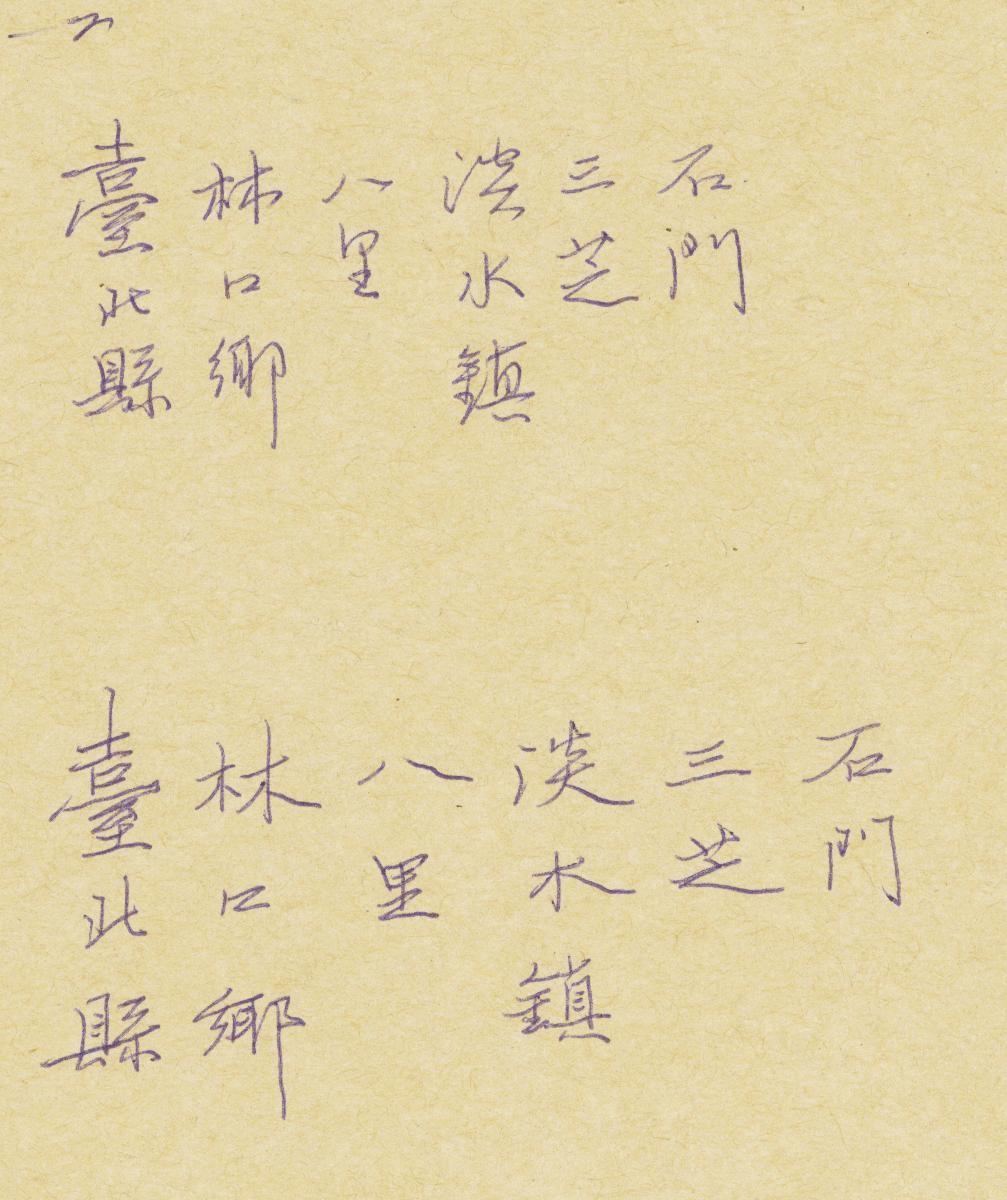 臺北縣
林口鄉
八里
淡水鎮
三芝
石門
臺北縣
林口鄉
八里
淡水鎮
三芝
石門